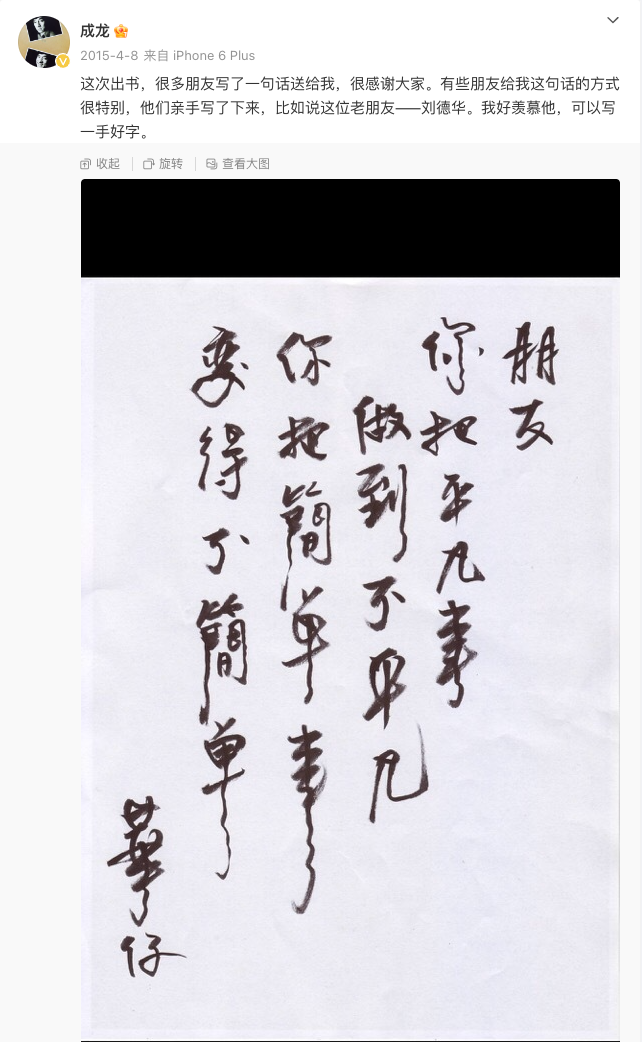 成龙
2015-4-8 来自 iPhone 6 Plus
这次出书，很多朋友写了一句话送给我，很感谢大家。有些朋友给我这句话的方式
很特别，他们亲手写了下来，比如说这位老朋友——刘德华。我好羡慕他，可以写
一手好字。
收起
旋转
查看大图
朋友
你把平凡事
做到不平凡
你把簡單事
变得不簡單
華仔